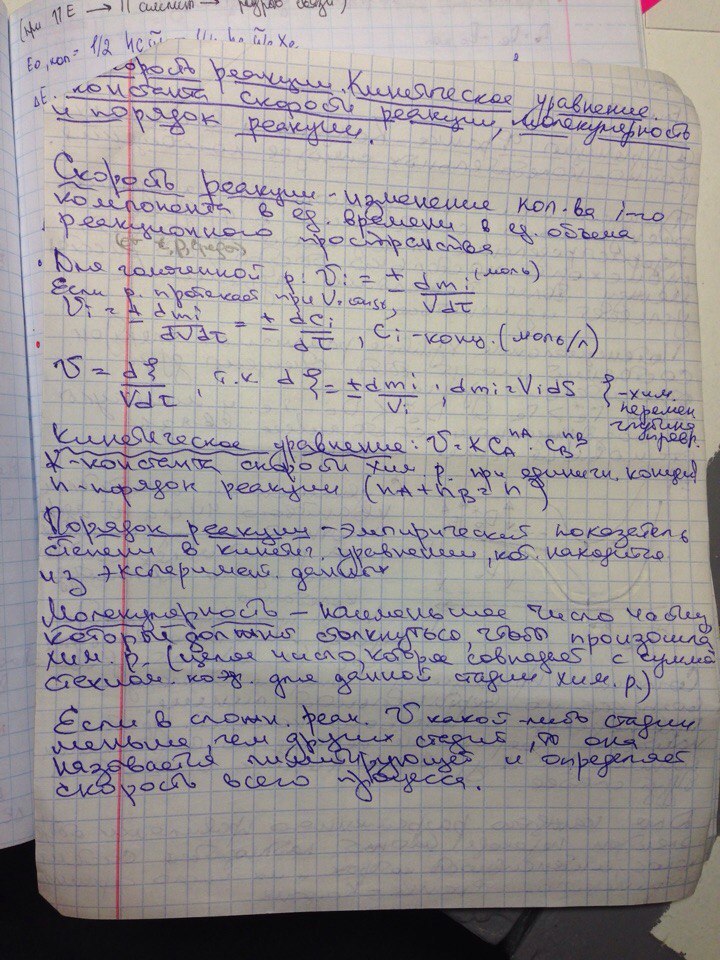 (при ПЕ → П
E₀,кол = 1/2 hc
ΔE
Скорость реакции. Кинетическое уравнение.
константа скорости реакции, молекулярность
и порядок реакции.
Скорость реакции - изменение кол-ва i-го
компонента в ед. времени в ед. объема
реакционного пространства
Для гомогенной р. Vi = ± dmi (моль) / Vdτ
Если р. протекает при V=const,
Vi = ± dmi / dVdτ = ± dCi / dτ , Ci - конц. (моль/л)
V = dξ / Vdτ , т.к dξ = ± dmi / Vi ; dmi = Vi dξ ξ - хим.
перемен
глубина
превр.
Кинетическое уравнение: V = KC_A^nA · C_B^nB
K - константа скорости хим. р. при единичн. концен
n - порядок реакции (nA + nB = n)
Порядок реакции - эмпирический показатель
степени в кинетич. уравнении, кот. находится
из эксперимент. данных
Молекулярность - наименьшее число частиц,
которые должны столкнуться, чтобы произошла
хим. р. (целое число, которое совпадает с суммой
стехиом. коэф. для данной стадии хим. р.)
Если в сложн. реак. V какой-либо стадии
меньше, чем других стадий, то она
называется лимитирующей и определяет
скорость всего процесса.